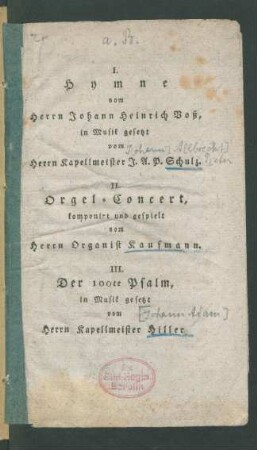 a. B.
I.
Hymne
vom
Herrn Johann Heinrich Voß,
in Musik gesetzt
vom
Herrn Kapellmeister J. A. P. Schulz.
II.
Orgel-Concert,
komponirt und gespielt
vom
Herrn Organist Kaufmann.
III.
Der 100te Psalm,
in Musik gesetzt
[Johann Adam]
vom
Herrn Kapellmeister Hiller.
Ex
Biblioth. Regia
Berolin.